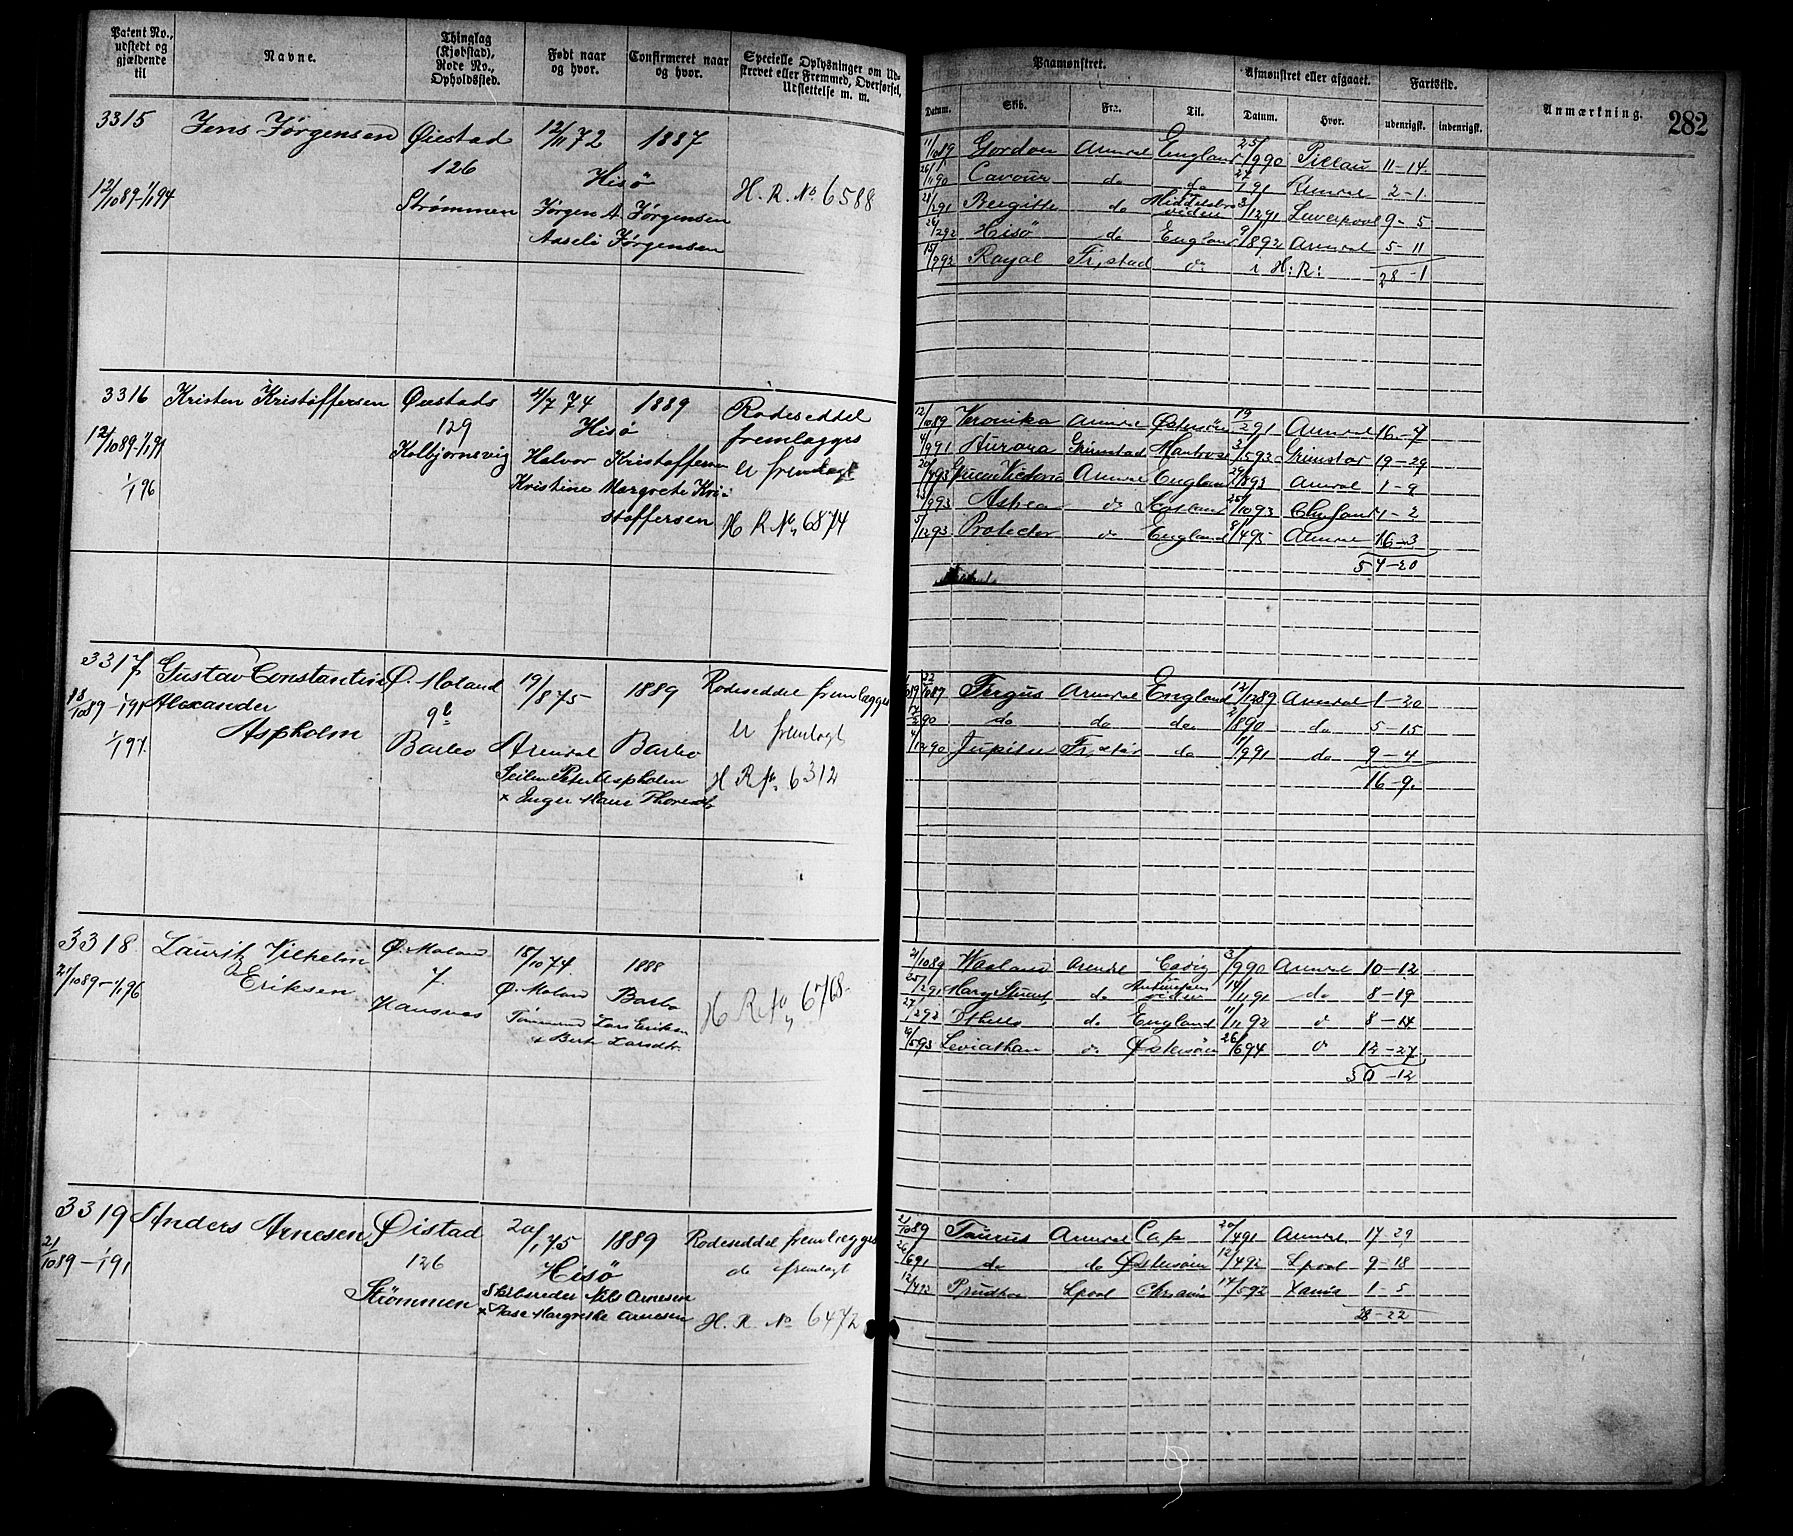 Patent No., udstedt og gjældende til
Navne.
Thinglag (Kjøbstad), Rode No., Opholdssted.
Født naar og hvor.
Confirmeret naar og hvor.
Specielle Oplysninger om Udskrevet eller Fremmed, Overførsel, Udslettelse m. m.
Paamønstret.
Datum. Skib. Fra. Til.
Afmønstret eller afgaaet.
Datum. Hvor.
Fartstid.
udenrigsk. indenrigsk.
Anmærkning.
282
3315 Jens Jørgensen Øiestad 12/11 72 1887
126 Hisö
12/10 89-1/1 94 Strømmen Jørgen A. Jørgensen H. R. No 6588
Aaseli Jørgensen
11/10 89 Gordon Arendal England 25/9 90 Pillau 11-14
26/11 90 Cavour do do 27/1 91 Arendal 2-1
Bergitte do 3/12 91 Liverpool 9-5
Hisö do England 9/8 92 Arendal 5-11
15/9 92 Royal Fr,stad do i H: R: 28-1
3316 Kristen Kristoffersen Øiestads 4/7 74 1889 Rodeseddel
129 Hisö fremlægges
12/10 89-1/1 91 Kolbjørnsvig Halvor Kristoffersen er fremlagt
1/1 96 Kristine Margrete Kri-
stoffersen H R. No 6874
12/10 89 Veronika Arendal Østersøen 19/2 91 Arendal 16-7
4/9 91 Aurora Grimstad Montrose 3/5 93 Grimstad 19-29
Queen Victoria Arendal England 29/8 93 Arendal 1-9
Astrea do Scotland 25/10 93 1-2
5/12 93 Protector do England 8/4 95 Arendal 16-3
54-20
3317 Gustav Constantin Ø. Moland 19/8 75 1889 Rodeseddel fremlægges
18/10 89-1/1 91 Alexander 9b er fremlagt
1/1 97. Aspholm Barbo Arendal Barbo
Seilm Peter Aspholm H R No 6312
x Inger Marie
22/10 89 Fergus Arendal England 12/12 89 Arendal 1-20
do do do do 5-15
4/12 90 Jupiter do 11/9 91 do 9-4
16-9.
3318 Lauritz Vilhelm Ø. Moland 18/10 74. 1888
21/10 89-1/1 96 Eriksen 7. Ø. Moland Barbo H R No 6768-
Hansnæs Tømmermd Lars Eriksen
x Berte Larsdtr.
21/10 89 Arendal 3/9 90 Arendal 10-12
Mary Stuart do 14/11 91 do 8-19
27/2 92 Othello do England 11/11 92 do 8-14
Leviathan do Østersøen 26/6 94 do 12-27
50-12
3319 Anders Arnesen, Øistad 20/1 75 1889 Rodeseddel fremlægges
21/10 89-1/1 91 126 Hisö do fremlagt
Strömmen Skibsreder Nils Arnesen
x Aase Margrethe Arnesen H. R. No 6472
21/10 89 Taurus Arendal Cap 20/4 91 Arendal 17 29
26/6 91 do do Østersøen 12/4 92 Lpool 9-18
12/4 92 Lpool 14/5 92 Xania 1-5
28-22